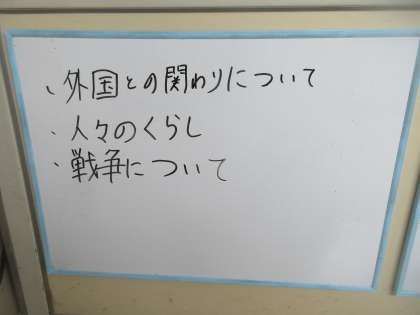 ・外国との関わりについて
・人々のくらし
・戦争について